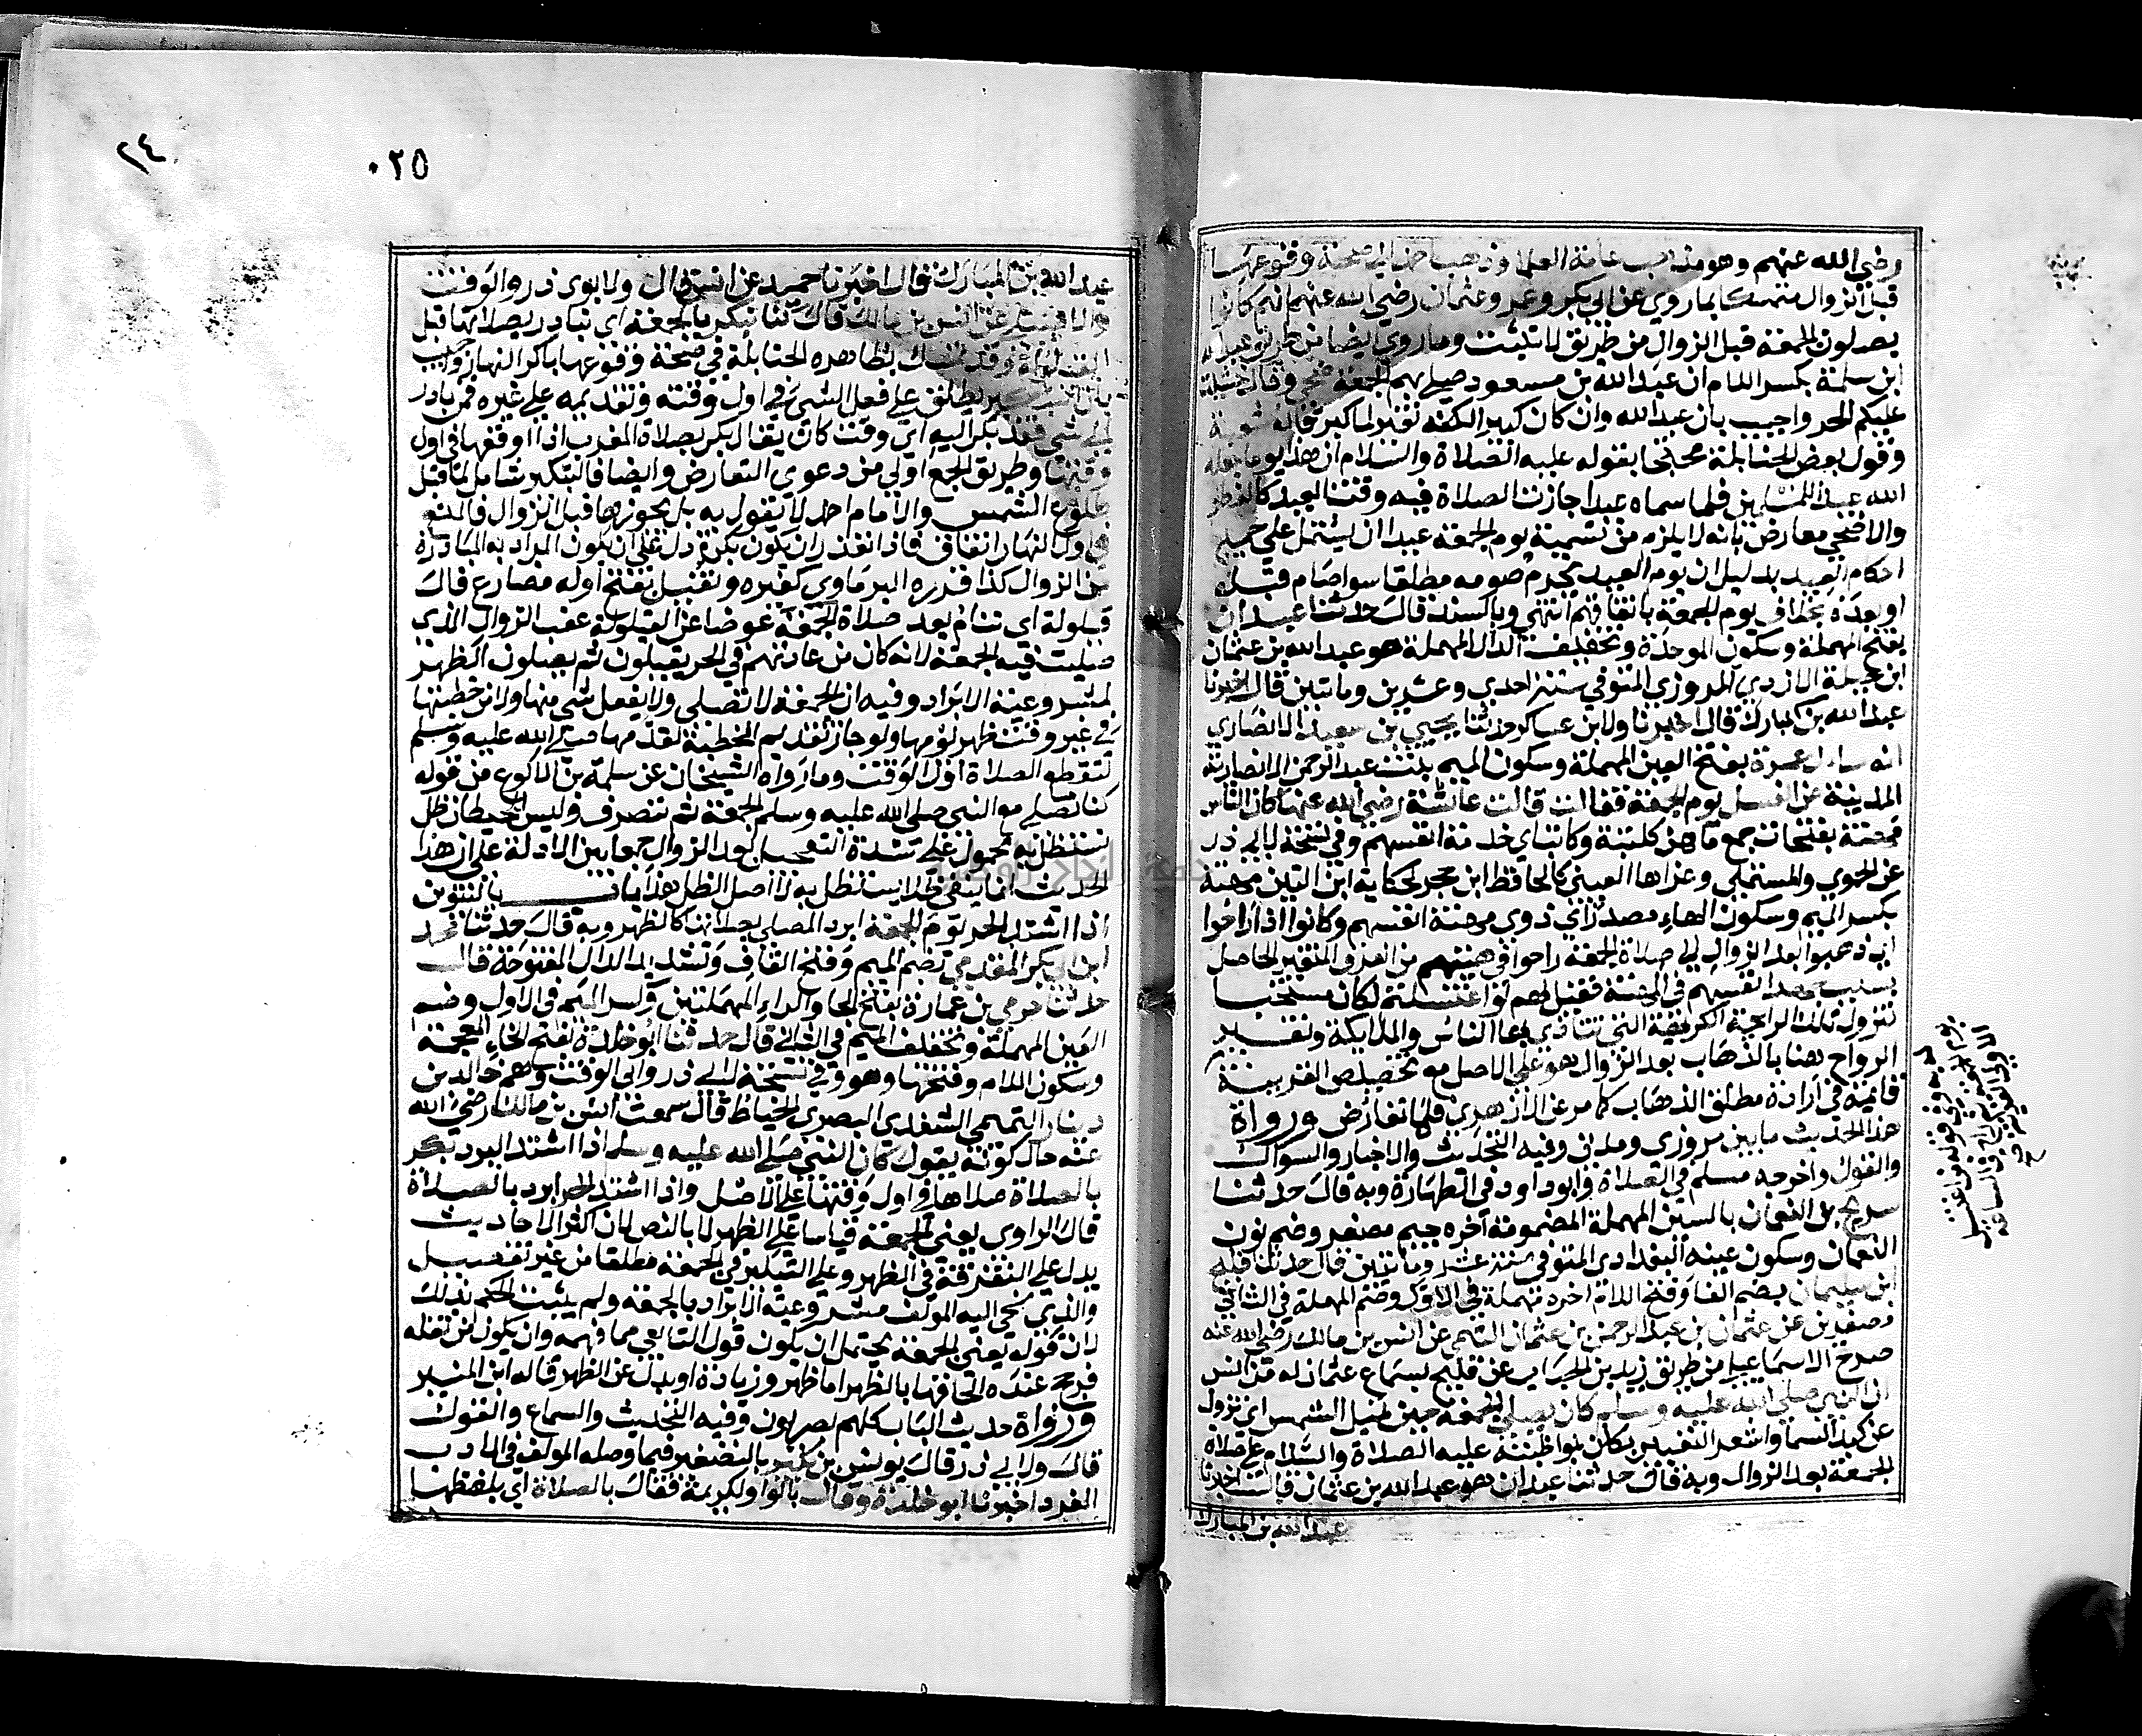 رضي الله عنهم وهو مذهب عامة العلما وذهب احمد الى صحة وقوعها
قبل الزوال متمسكا بما روي عن ابي بكر وعمر وعثمان رضي الله عنهم انهم كانوا
يصلون الجمعة قبل الزوال من طريق لا تثبت وما روي ايضا من طريق عبد الله
ابن سلمة بكسر اللام ان عبد الله بن مسعود صلى بهم الجمعة ضحى وقال خشيت
عليكم الحر واجيب بان عبد الله وان كان كبيرا لكنه تغير لما كبر قاله شعبة
وقول بعض الحنابلة محتجا بقوله عليه الصلاة والسلام ان هذا يوم جعله
الله عيدا للمسلمين فلما سماه عيدا جازت الصلاة فيه وقت العيد كالفطر
والاضحى معارض بانه لا يلزم من تسمية يوم الجمعة عيدا ان يشتمل على جميع
احكام العيد بدليل ان يوم العيد يحرم صومه مطلقا سوا صام قبله
او بعده بخلاف يوم الجمعة باتفاقهم انتهى وبالسند قال حدثنا عبدان
بفتح المهملة وسكون الموحدة وتخفيف الدال المهملة هو عبد الله بن عثمان
ابن جبلة الازدي المروزي المتوفي سنة احدي وعشرين وماتين قال اخبرنا
عبد الله بن المبارك قال اخبرنا ولابن عساكر حدثنا يحيى بن سعيد الانصاري
انه سال عمرة بفتح العين المهملة وسكون الميم بنت عبد الرحمن الانصارية
المدينة عن الغسل يوم الجمعة فقالت قالت عائشة رضي الله عنها كان الناس
مهنة بفتحات جمع ماهن ككتبة وكاتب اي خدمة انفسهم وفي نسخة لابي ذر
عن الحموي والمستملي وعزاها العيني كالحافظ ابن حجر لحكاية ابن التين مهنة
بكسر الميم وسكون الهاء مصدر اي ذوي مهنة انفسهم وكانوا اذا راحوا
اي ذهبوا بعد الزوال الى صلاة الجمعة راحوا في هيئتهم من العرق المتغير الحاصل
بسبب جهد انفسهم في المهنة فقيل لهم لو اغتسلتم لكان مستحبا
لتزول تلك الرائحة الكريهة التي تتاذى بها الناس والملايكة وتفسير
الرواح هنا بالذهاب بعد الزوال هو على الاصل مع تخصيص القرينة
قائمة في ارادة مطلق الذهاب كما مر عن الازهري فلا تعارض ورواة
هذا الحديث ما بين مروزي ومدني وفيه التحديث والاخبار والسوال
والقول واخرجه مسلم في الصلاة وابو داود في الطهارة وبه قال حدثنا
سريج بن النعمان بالسين المهملة المضمومة آخره جيم مصغر وضم نون
النعمان وسكون عينه البغدادي المتوفي سنة عشر وماتين قال حدثنا فليح
ابن سليمان بضم الفا وفتح اللام اخره مهملة في الاول وضم المهملة في الثاني
مصغرين عن عثمان بن عبد الرحمن بن عثمان التيمي عن انس بن مالك رضي الله عنه
صرح الاسماعيلي من طريق زيد بن الحباب عن فليح بسماع عثمان له من انس
ان النبي صلى الله عليه وسلم كان يصلي الجمعة حين تميل الشمس اي تزول
عن كبد السما واشعر التعبير بكان بمواظبته عليه الصلاة والسلام على صلاة
الجمعة بعد الزوال وبه قال حدثنا عبدان هو عبد الله بن عثمان قال اخبرنا
عبد الله بن المبارك
٠٢٥
٢٤
عبد الله بن المبارك قال اخبرنا حميد عن انس قال ولابوي ذر والوقت
والاصيلي عن انس بن مالك قال كنا نبكر بالجمعة اي نبادر بصلاتها قبل
القيلولة وقد تمسك بظاهره الحنابلة في صحة وقوعها باكر النهار واجيب
بان التبكير يطلق على فعل الشيء في اول وقته وتقديمه على غيره فمن بادر
الى شي فقد بكر اليه اي وقت كان يقال بكر بصلاة المغرب اذا اوقعها في اول
وقتها وطريق الجمع اولى من دعوي التعارض وايضا فالتبكير شامل لما قبل
طلوع الشمس والامام احمد لا يقول به بل يجوزها قبل الزوال فالمنع
في اول النهار اتفاق فاذا تعذر ان يكون بكرة دل على ان يكون المراد به المبادرة
من الزوال كذا قرره البرماوي كغيره ونقيل بفتح اوله مضارع قال
قيلولة اي ننام بعد صلاة الجمعة عوضا عن القيلولة عقب الزوال الذي
صليت فيه الجمعة لانه كان من عادتهم في الحر يقيلون ثم يصلون الظهر
لمشروعية الابراد وفيه ان الجمعة لا تصلى ولا يفعل شي منها ولا من خطبتها
في غير وقت ظهر يومها ولو جاز تقديم الخطبة لقدمها صلى الله عليه وسلم
لتقع الصلاة اول الوقت وما رواه الشيخان عن سلمة بن الاكوع من قوله
كنا نصلي مع النبي صلى الله عليه وسلم الجمعة ثم ننصرف وليس للحيطان ظل
نستظل به محمول على شدة التعجيل بعد الزوال جمعا بين الادلة على ان هذا
الحديث انما ينفي ظلا يستظل به لا اصل الظل هذا باب بالتنوين
اذا اشتد الحر يوم الجمعة ابرد المصلي بصلاتها كالظهر وبه قال حدثنا محمد
ابن ابي بكر المقدمي بضم الميم وفتح القاف وتشديد الدال المفتوحة قال
حدثنا حرمي بن عمارة بفتح الحا والراء المهملتين وكسر الميم في الاول وضم
العين المهملة وتخفيف الميم في الثاني قال حدثنا ابو خلدة بفتح الخاء المعجمة
وسكون اللام وفتحها وهو وفي نسخة لابي ذر وابي الوقت وهو خالد بن
دينار التميمي السعدي البصري الخياط قال سمعت انس بن مالك رضي الله
عنه حال كونه يقول كان النبي صلى الله عليه وسلم اذا اشتد البرد بكر
بالصلاة صلاها في اول وقتها على الاصل واذا اشتد الحر ابرد بالصلاة
قال الراوي يعني الجمعة قياسا على الظهر لا بالنص لان اكثر الاحاديث
يدل على التفرقة في الظهر وعلى التبكير في الجمعة مطلقا من غير تفصيل
والذي نحى اليه المولف مشروعية الابراد بالجمعة ولم يثبت الحكم بذلك
لان قوله يعني الجمعة يحتمل ان يكون قول التابعي مما فهمه وان يكون من نقله
فرجح عنده الحاقها بالظهر اما ظهر وزيادة او بدل عن الظهر قاله ابن المنير
ورواة حديث الباب كلهم بصريون وفيه التحديث والسماع والقول
قال ولابي ذر قال يونس بن بكير بالتصغير فيما وصله المولف في الادب
المفرد اخبرنا ابو خلدة وقال بالواو لكريمة فقال بالصلاة اي بلفظها